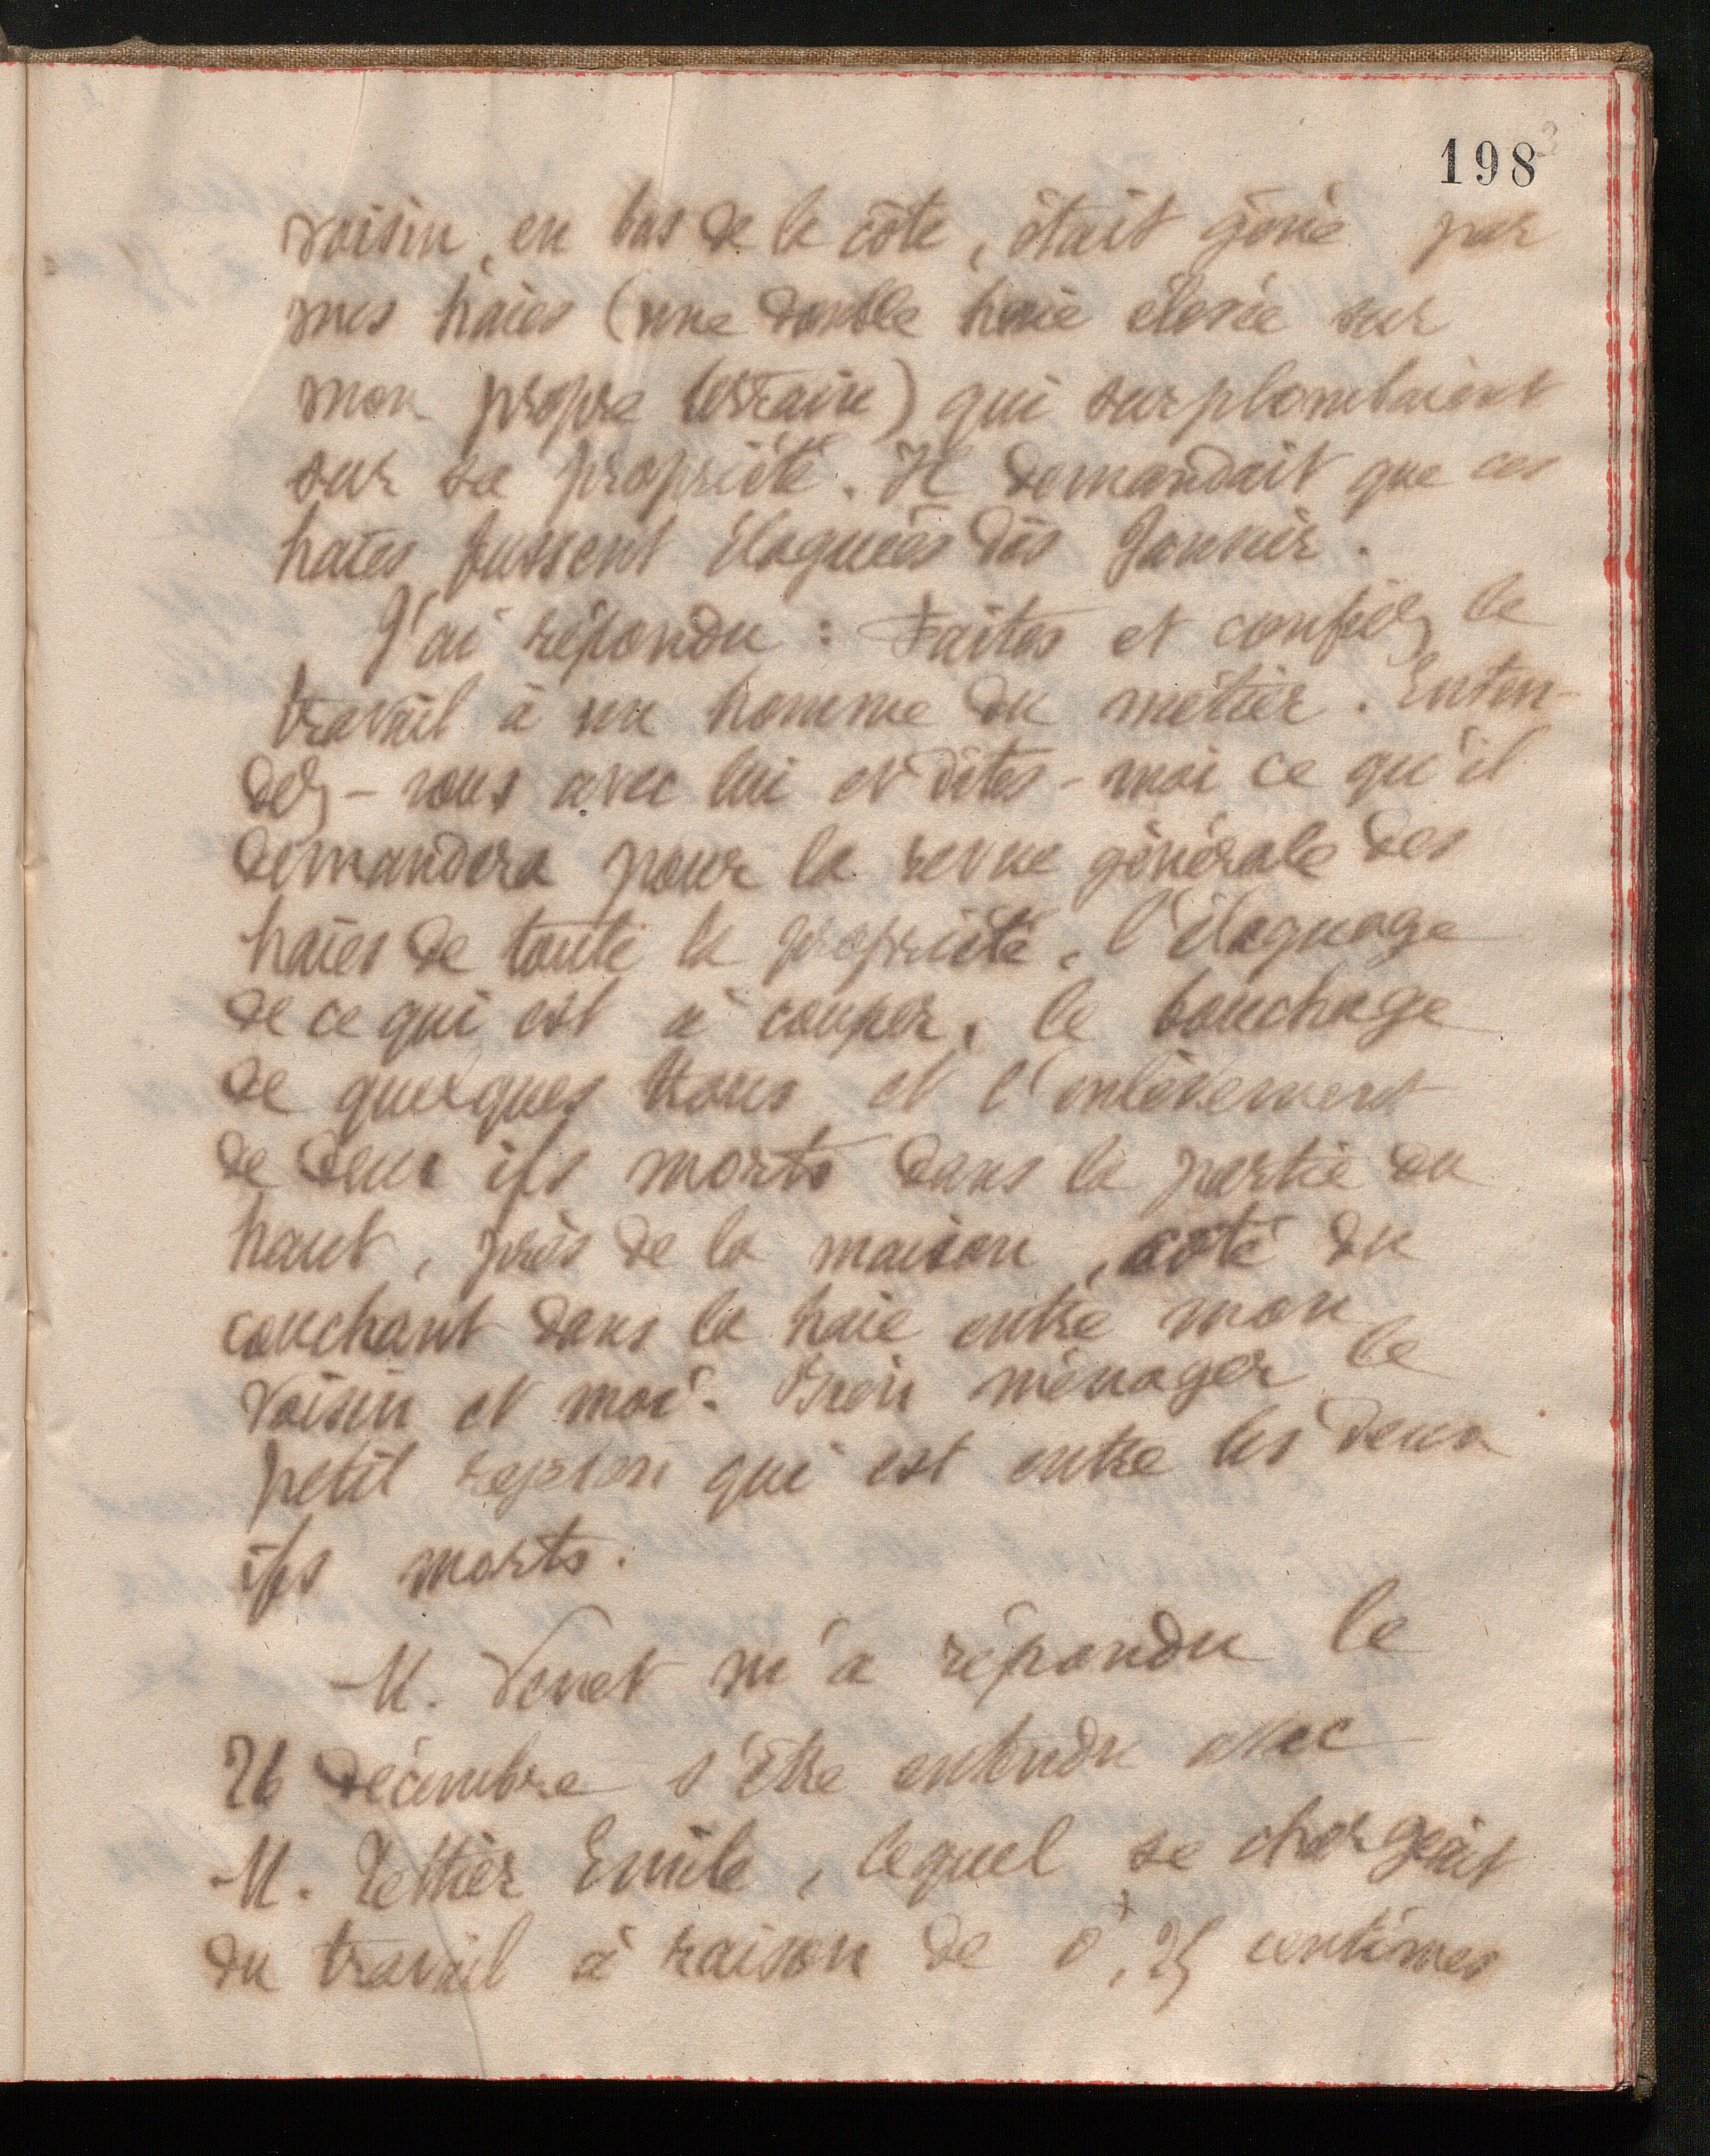 198
voisin, en bas de la côte, était gêné par
mes haies (une double haie élevée sur
mon propre terrain) qui surplombaient
sur sa propriété. Il demandait que ces
haies fussent élaguées dès Janvier.
J'ai répondu : Faites et confiez le
travail à un homme du métier. Enten-
dez-vous avec lui et dites-moi ce qu'il
demandera pour la revue générale des
haies de toute la propriété, l'élaguage
de ce qui est à couper, le bouchage
de quelques trous et l'enlèvement
de deux ifs morts dans la partie du
haut, près de la maison, côté du
couchant dans la haie entre mon
voisin et moi. Bien ménager le
petit qui est entre les deux
ifs morts.
M. Venet m'a répondu le
26 décembre s'être entendu avec
M. Tettier Emile, lequel se chargeait
du travail à raison de 0f,25 centimes